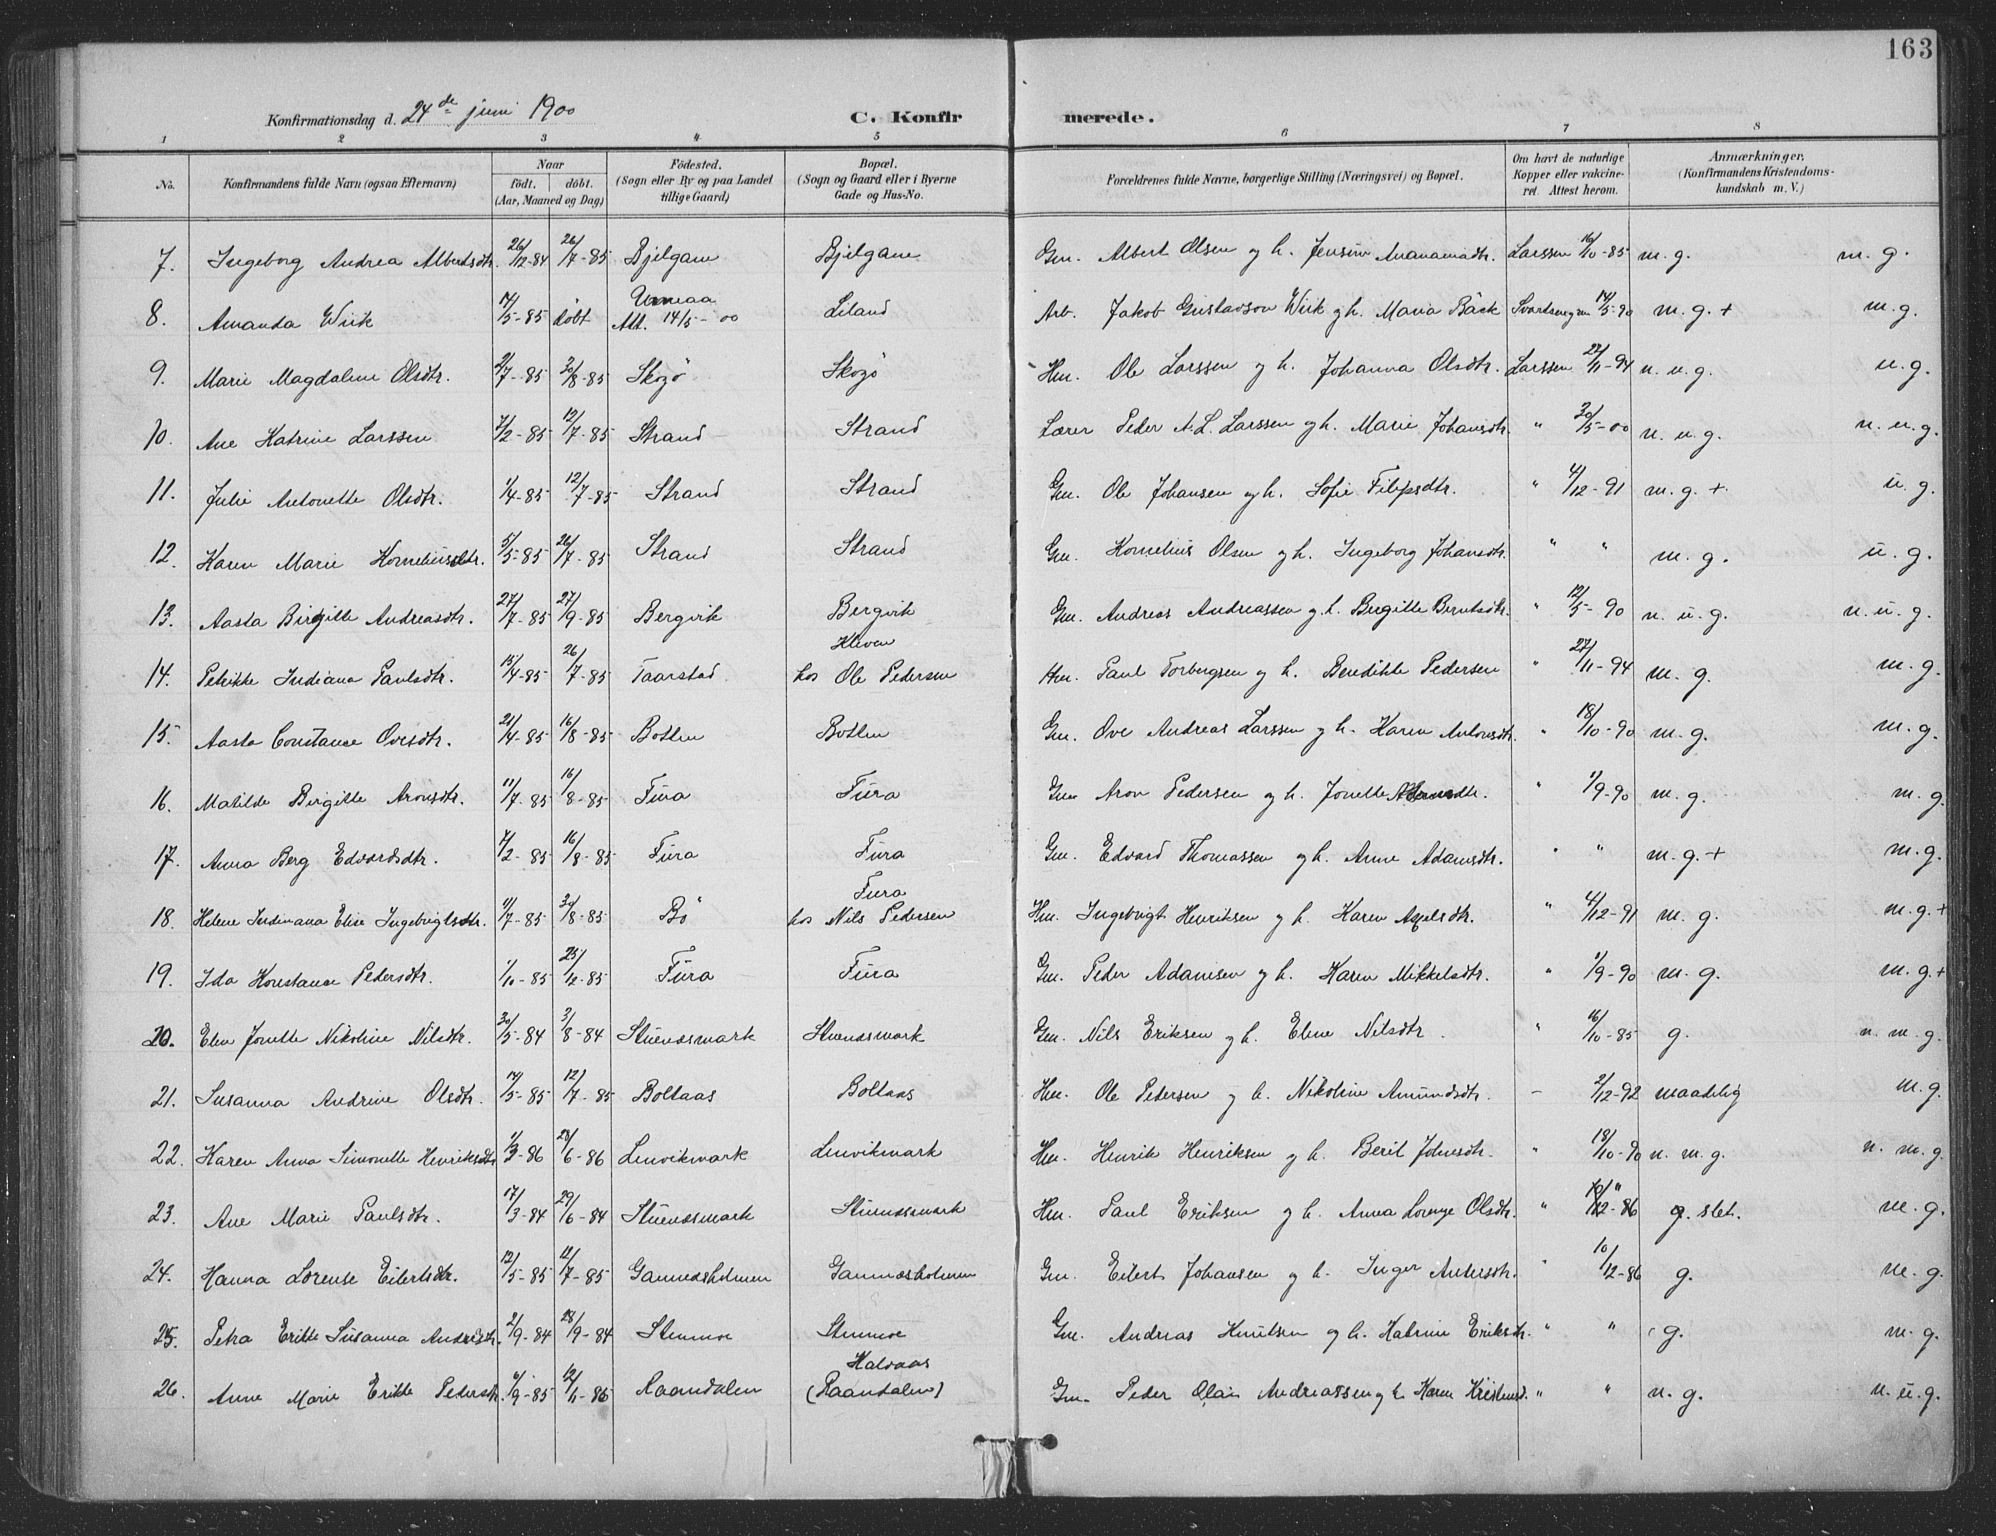 163
Konfirmationsdag d. 24de juni 1900 C. Konfirmerede.
1 2 3 4 5 6 7 8
No. Konfirmandens fulde Navn (ogsaa Efternavn) Naar födt. döbt. (Aar, Maaned og Dag) Födested. (Sogn eller By og paa Landet tillige Gaard) Bopæl. (Sogn og Gaard eller i Byerne Gade og Hus-No. Forældrenes fulde Navne, borgerlige Stilling (Næringsvei) og Bopæl. Om havt de naturlige Kopper eller vakcineret. Attest herom. Anmærkninger. (Konfirmandens Kristendomskundskab m. V.)
7. Ingeborg Andrea Albertsdtr. 26/12-84 26/7-85 Bjelgam Bjelgam Gm. Albert Olsen og h. Jensine Larssen 16/10-85 m. g. m. g.
8. Amanda Wiik 14/5-85 döbt Umeaa Att. 14/5-00 Liland Arb. Jakob Gustavson Wiik og h. Maria Bäck 14/5-90 m. g. + m. g.
9. Marie Magdalene Olsdtr. 2/7-85 30/8-85 Skozö Skozö Hm. Ole Larssen og h. Johanna Olsdtr. Larssen 27/11-94 n. u. g. u. g.
10. Ane Katrine Larssen 7/2-85 12/7-85 Strand Strand Lærer Peder A. L. Larssen og h. Marie Johansdtr. " 30/5-00 n. u. g. n. u. g.
11. Julie Antonette Olsdtr. 1/4-85 12/7-85 Strand Strand Gm. Ole Johansen og h. Sofie Filipsdtr. " 4/12-91 m. g. + u. g.
12. Karen Marie Korneliusdtr. 5/5-85 26/7-85 Strand Strand Gm. Kornelius Olsen og h. Ingeborg Johansdtr. " " m. g. u. g.
13. Aasta Birgitte Andreasdtr. 27/7-85 27/9-85 Bergvik Bergvik Gm. Andreas Andreassen og h. Birgitte Berntsdtr. " 12/5-90 n. u. g. n. u. g.
14. Petrikke Indiana Paulsdtr. 15/4-85 26/7-85 Taarstad Kleven hos Ole Pedersen Hm. Paul Torbergsen og h. Benedikte Pedersen " 27/11-94 m. g. m. g.
15. Aasta Constance Ovesdtr. 21/4-85 16/8-85 Botten Botten Gm. Ove Andreas Larssen og h. Karen Antonsdtr. " 18/10-90 m. g. m. g.
16. Matilde Birgitte Aronsdtr. 11/7-85 16/8-85 Fura Fura Gm Aron Pedersen og h. Jonette " 1/9-90 m. g. m. g.
17. Anna Berg Edvardsdtr. 7/2-85 16/8-85 Fura Fura Gm. Edvard Thomassen og h. Anne Adamsdtr. " " m. g. + m. g.
18. Helene Indiana Elise Ingebrigtsdtr. 11/7-85 30/8-85 Bö Fura hos Nils Pedersen Hm. Ingebrigt Henriksen og h. Karen Axelsdtr. " 4/12-91 m. g. m. g. +
19. Ida Konstanse Pedersdtr. 1/10-85 25/12-85 Fura Fura Gm. Peder Adamsen og h. Karen Mikkelsdtr. " 1/9-90 m. g. m. g. +
20. Elen Jonette Nikoline Nilsdtr. 30/5-84 3/8-84 Stuenesmark Stuenesmark Gm. Nils Eriksen og h. Eline Nilsdtr. " 16/10-85 g. n. m. g.
21. Susanna Andrine Olsdtr. 14/5-85 12/7-85 Boltaas Boltaas Hm. Ole Pedersen og h. Nikoline Amundsdtr. - 2/12-92 maadelig m. g.
22. Karen Anna Simonette Henriksdtr 1/3-86 28/6-86 Lenvikmark Lenvikmark Hm. Henrik Henriksen og h. Berit Johnsdtr. " 18/10-90 n. m. g. n. m. g.
23. Ane Marie Paulsdtr. 17/3-84 29/6-84 Stuenesmark Stuenesmark Hm. Paul Eriksen og h. Anna Lorenze Olsdtr. " 10/12-86 g. slet. m. g.
24. Hanna Lorense Eilertsdtr. 12/5-85 12/7-85 Gannesholmen Gannesholmen Gm. Eilert Johansen og h. Inger Andersdtr. " 10/12-86 g. m. g.
25. Petra Erikke Susanna Andreasdtr. 2/9-84 28/9-84 Stenmoe Stenmoe Gm. Andreas Knutsen og h. Katrine Eriksdtr. " " g. m. g.
26. Anne Marie Erikke Pedersdtr. 6/9-85 12/11-86 Raandalen Halvaas (Raandalen) Gm. Peder Olai Andreassen og h. Karen Kristensd. " " n. g. n. u. g.